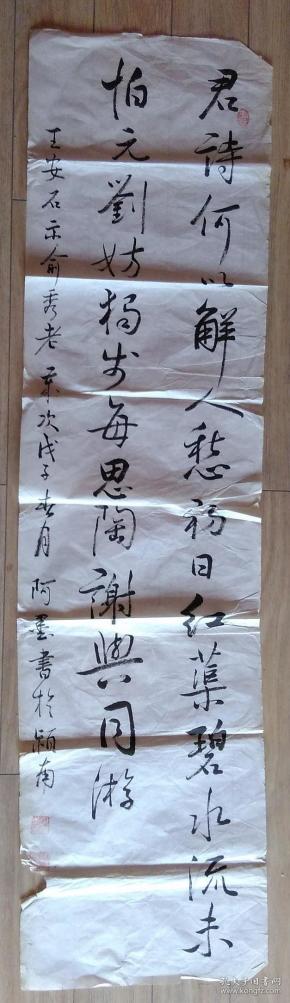 君詩何以解人愁初日紅蕖碧水流未
怕元劉妨獨步每思陶謝與同游
王安石示俞秀老 歲次戊子春月 阿墨書於潁南
孔夫子旧书网